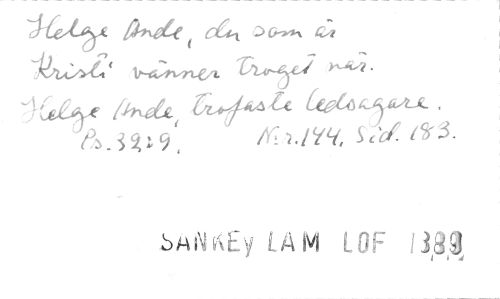 Helge Ande, du som är
Kristi vänner troget när.
Helge Ande, trofaste ledsagare.
Ps. 32:9. Nr. 144. Sid. 183.
SANKEY LAM LOF 1389